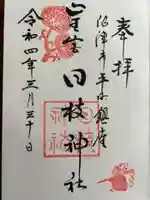 奉拝
沼津市平町鎮座
日枝神社
令和四年三月三十日